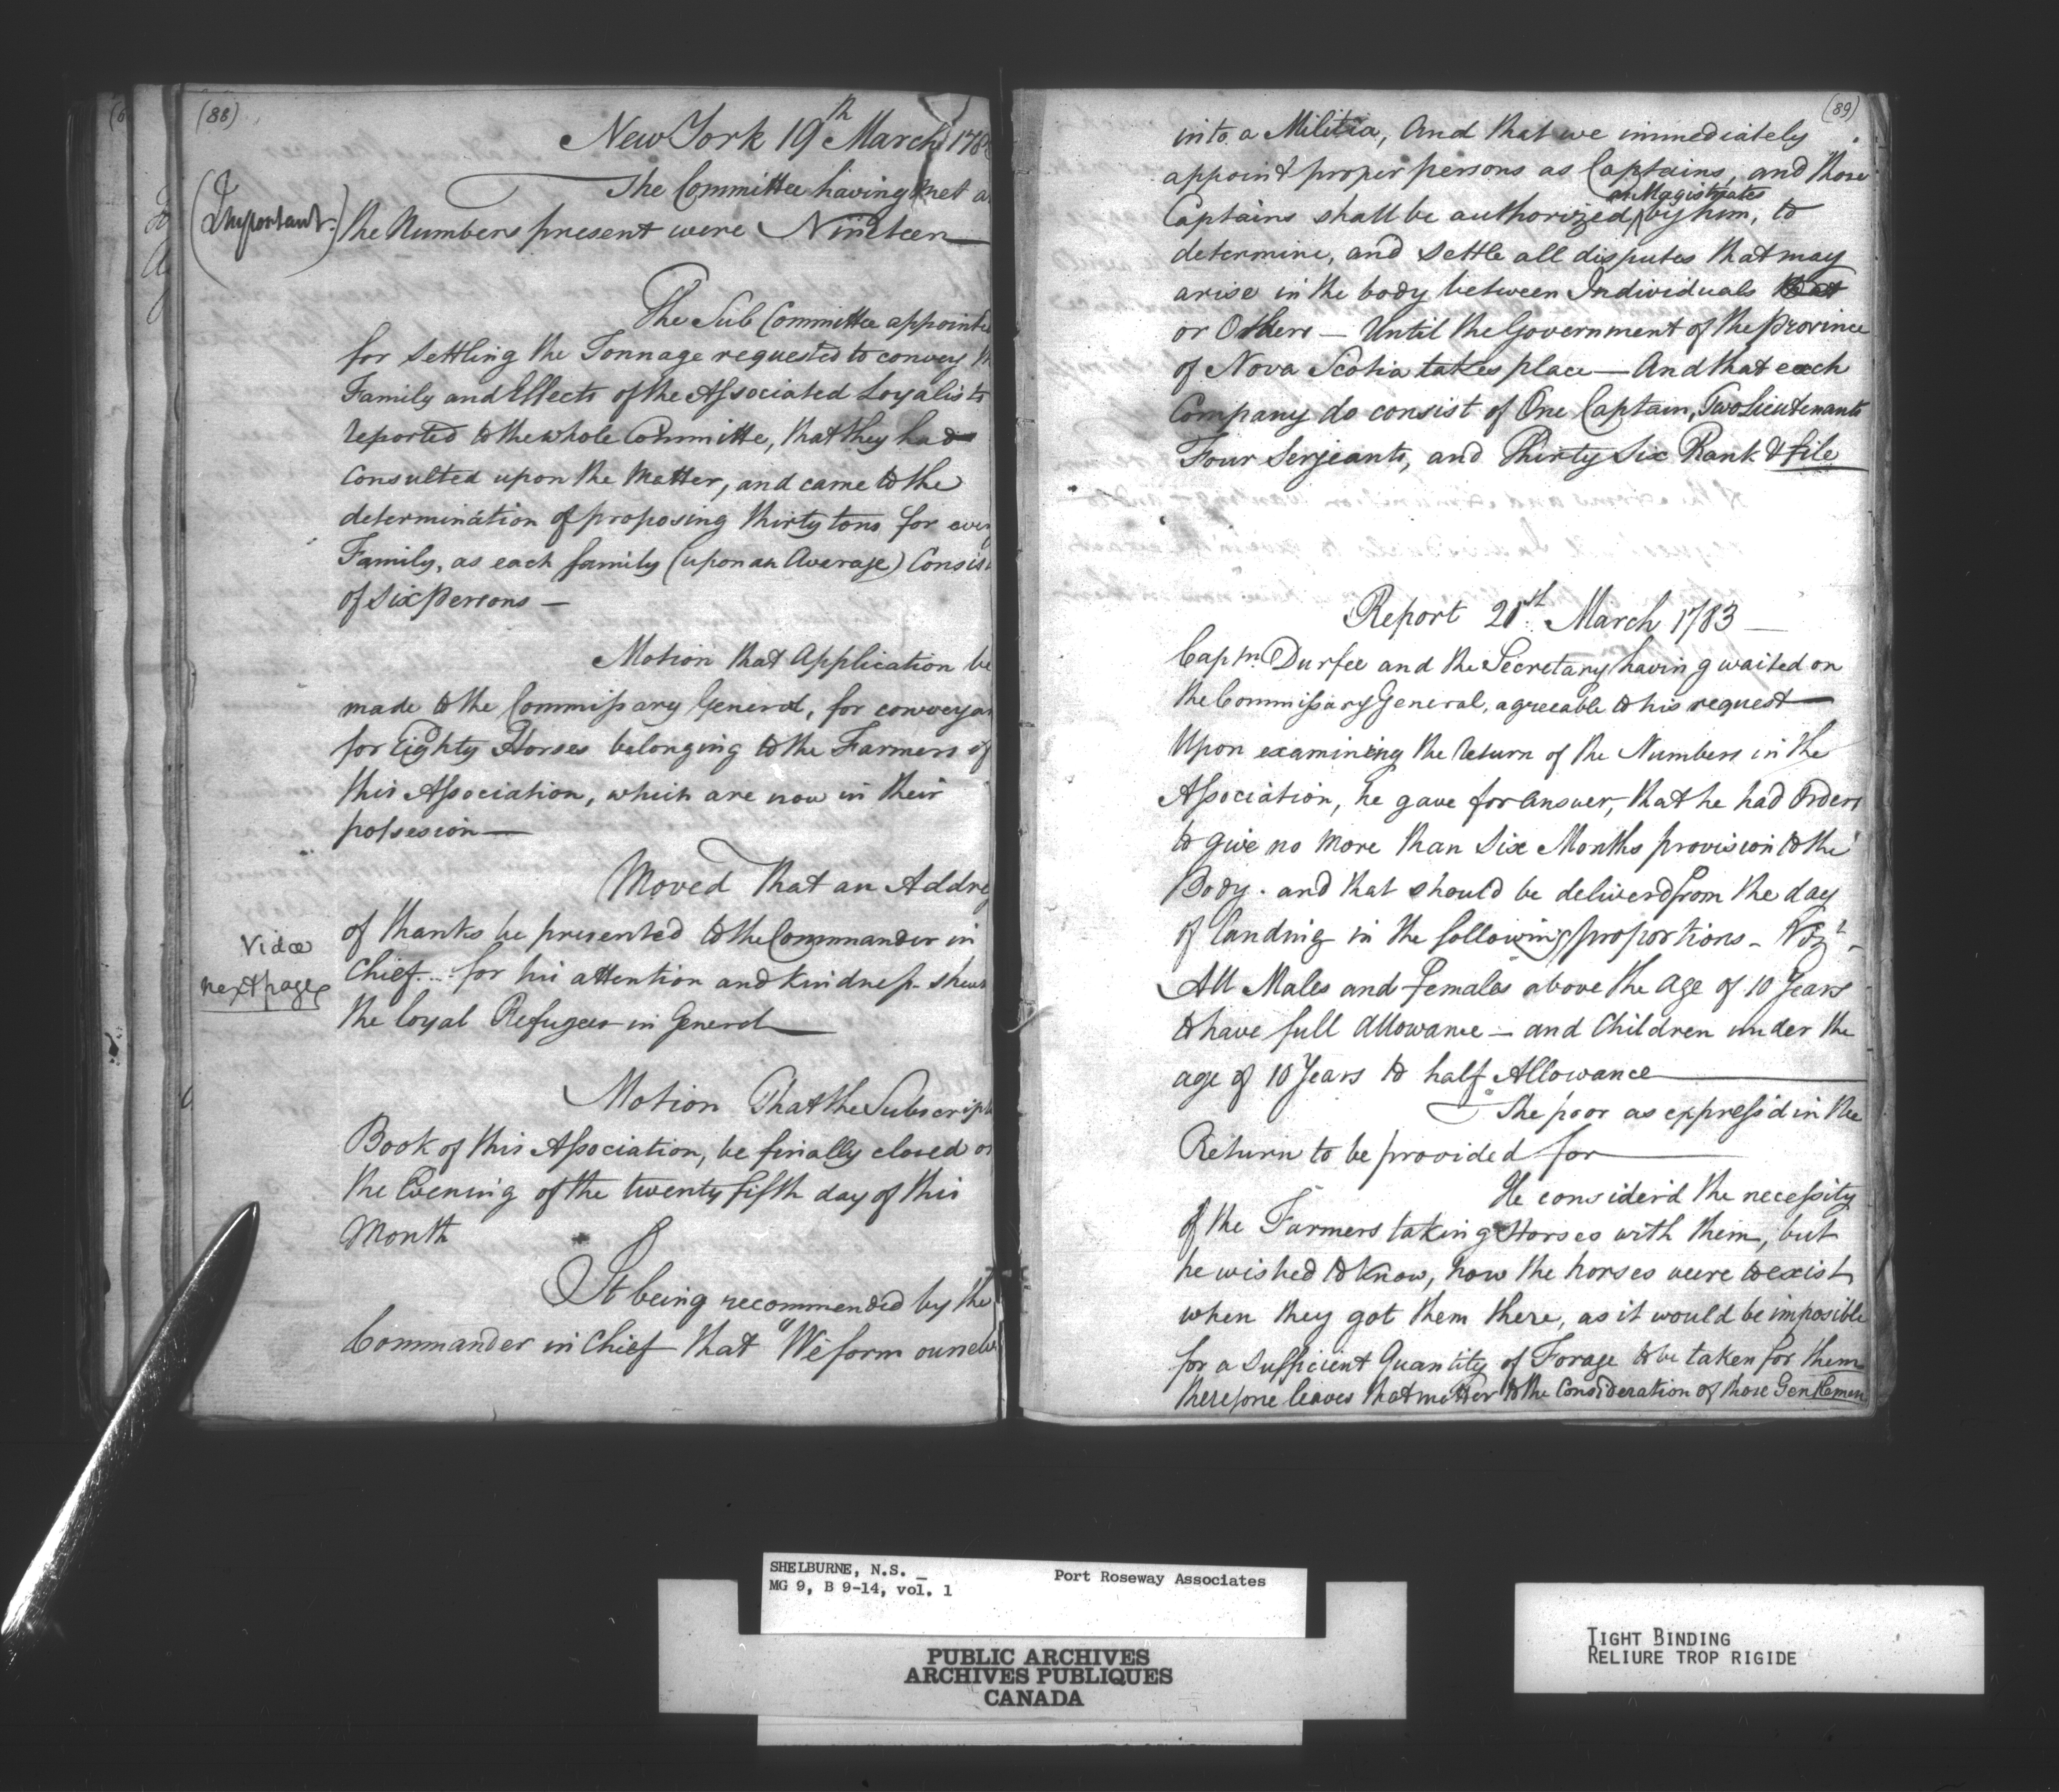 (88)
New York 19th March 178
The Committee having met a
(Important.)
the Numbers present were Nineteen
The Sub Committee appointe
for Settling the Tonnage requested to convey th
Family and Effects of the Associated Loyalists
reported to the whole Committe, that they had
Consulted upon the Matter, and came to the
determination of proposing thirty tons for every
Family, as each family (upon an Average) Consist
of Six Persons —
Motion that Application be
made to the Commissary General, for conveyan
for Eighty Horses belonging to the Farmers of
this Association, which are now in their
possesion —
Moved That an Addre
of thanks be presented to the Commander in
Chief... for his attention and kindness shewn
the Loyal Refugees in General
Vidæ
next page
Motion That the Subscript
Book of this Association, be finally closed on
the Evening of the twenty fifth day of this
Month
It being recommended by the
Commander in Chief that "We form ourselve
(89)
into a Militia, And that we immediately
appoint proper persons as Captains, and those
as Magistrates
Captains shall be authorized ^ by him, to
determine, and settle all disputes that may
arise in the body between Individuals
or Others — Until the Government of the Province
of Nova Scotia takes place — And that each
Company do consist of One Captain, Two Lieutenants
Four Serjeants, and Thirty Six Rank & file
Report 21st March 1783 —
Captn. Durfee and the Secretary having waited on
the Commissary General, agreeable to his request —
Upon examining the return of the Numbers in the
Association, he gave for answer, that he had Orders
to give no more than Six Months provision to the
Body. and that should be deliverd from the day
of landing in the following proportions — Vizt —
All Males and Females above the age of 10 Years
to have full allowance — and Children under the
age of 10 Years to half Allowance
The poor as express'd in the
Return to be provided for
He consider'd the necessity
of the Farmers taking Horses with them, but
he wished to know, how the horses were to exist
when they got them there, as it would be imposible
for a sufficient Quantity of Forage to be taken for them
therefore leaves that matter to the Consideration of those Gentlemen
SHELBURNE, N.S. _
MG 9, B 9-14, vol. 1
Port Roseway Associates
PUBLIC ARCHIVES
ARCHIVES PUBLIQUES
CANADA
TIGHT BINDING
RELIURE TROP RIGIDE